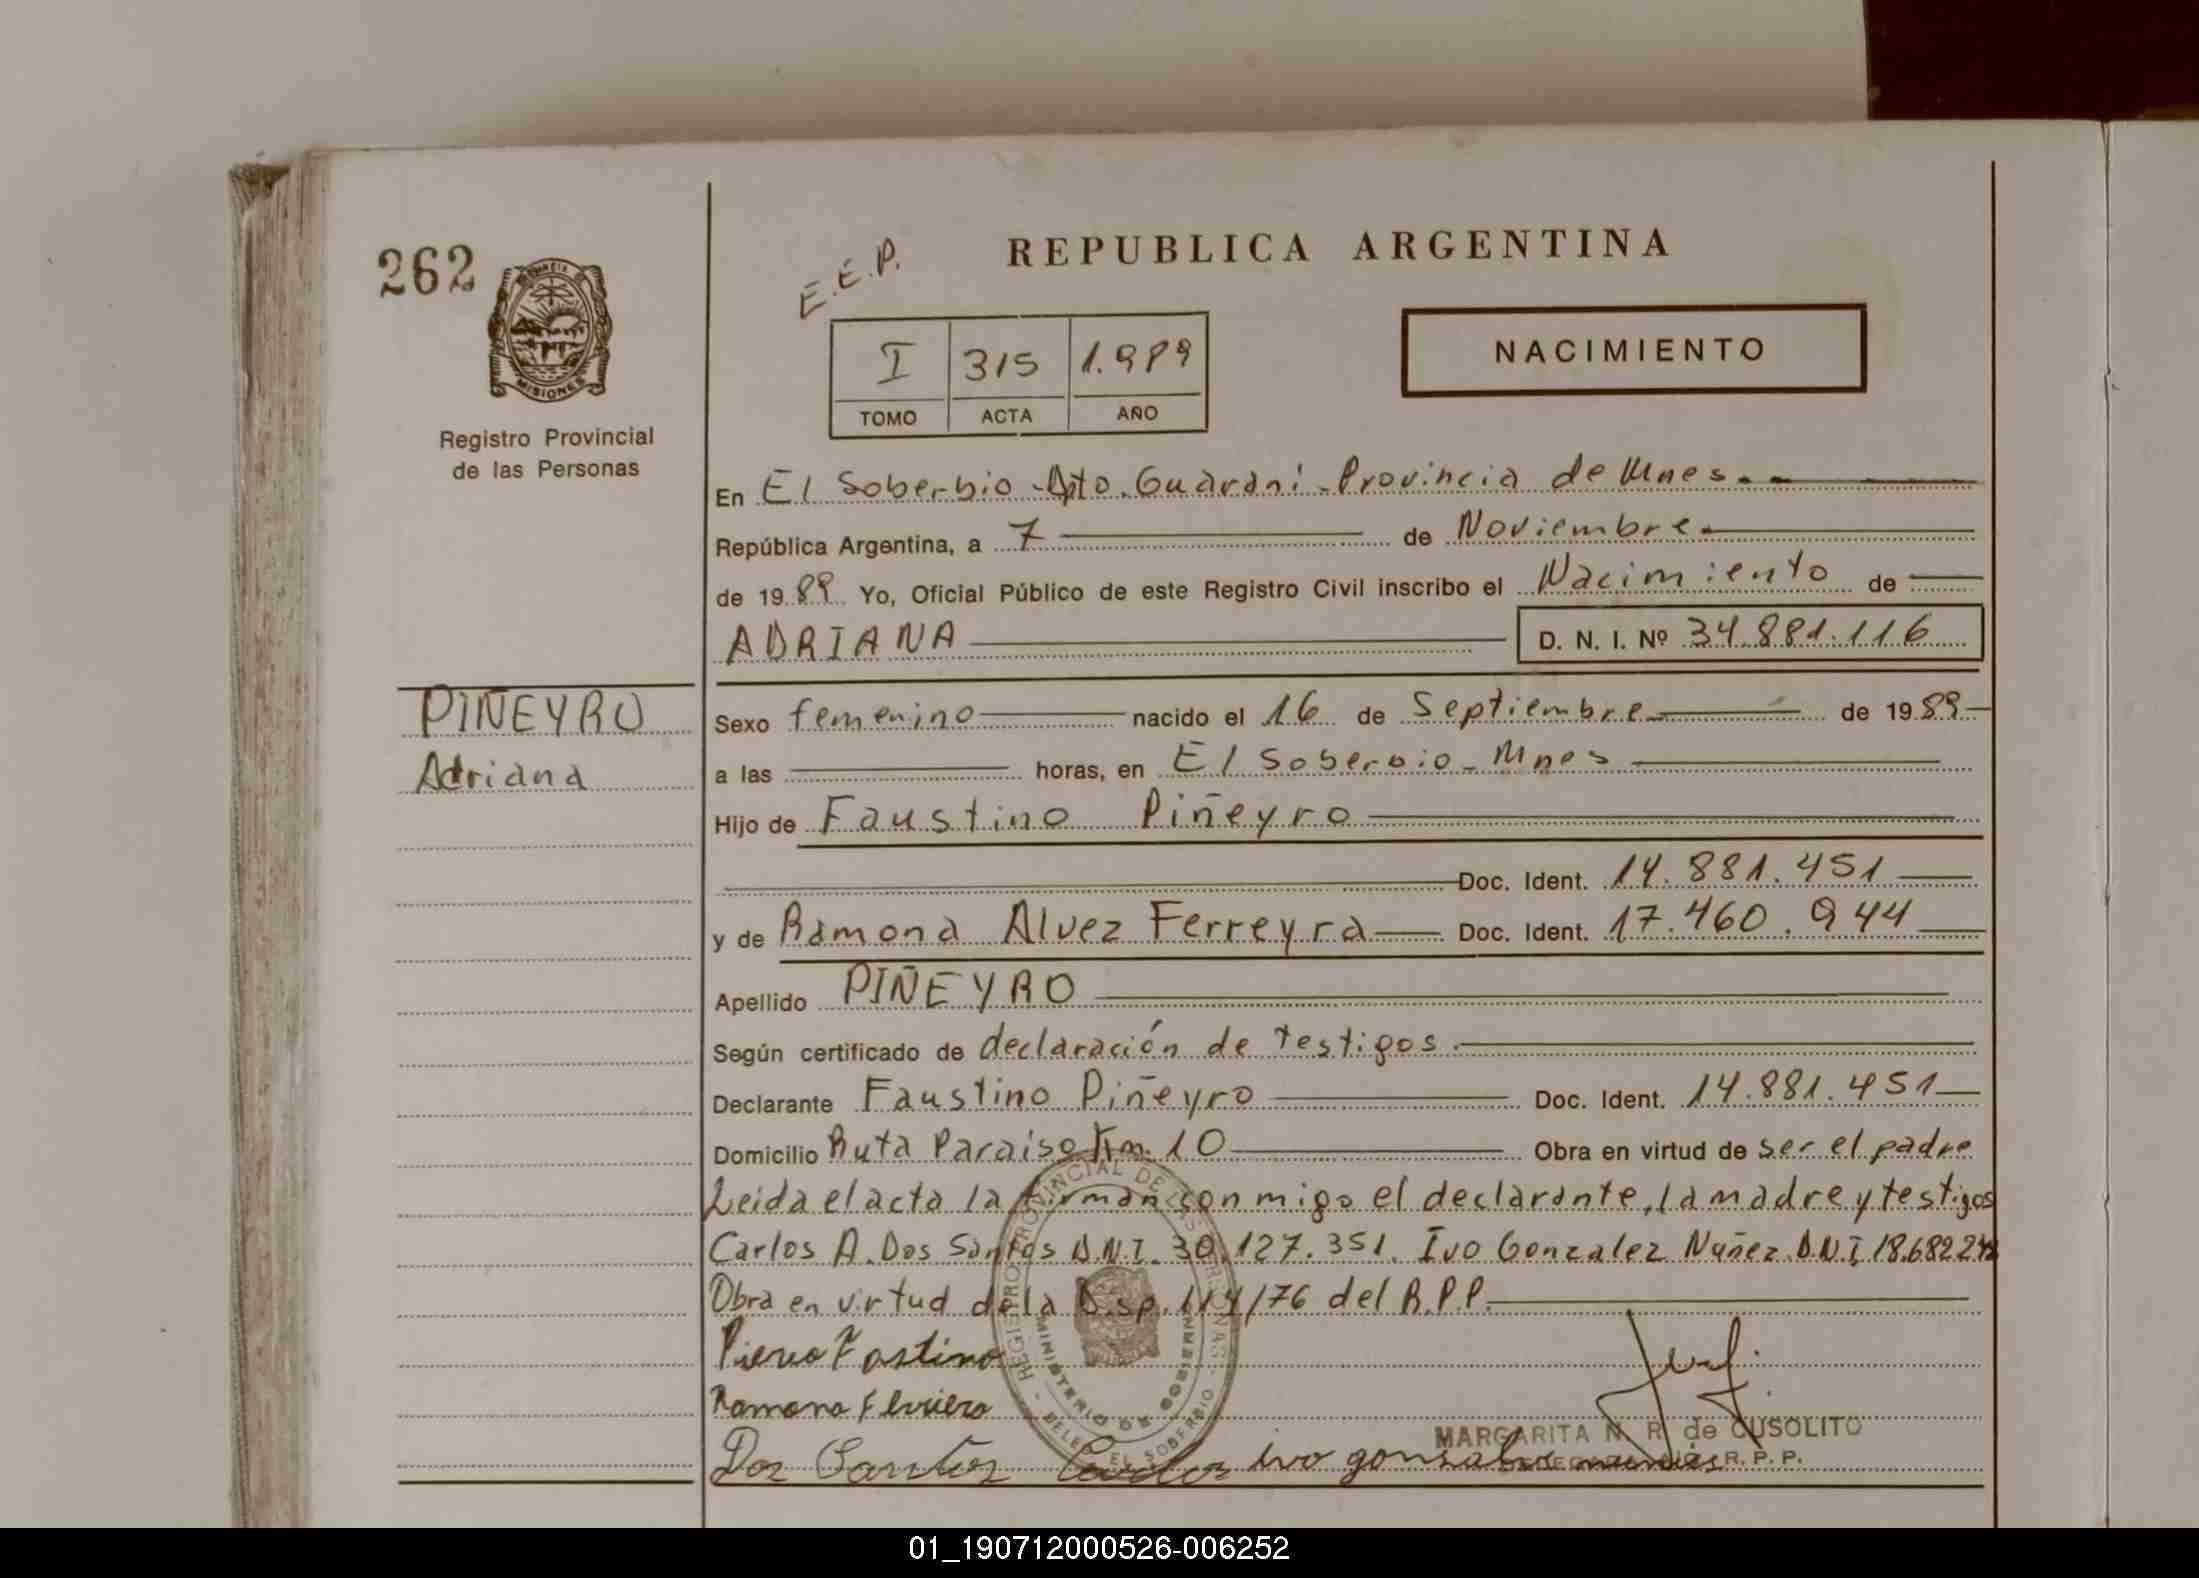 262
PROVINCIA DE
MISIONES
Registro Provincial
de las Personas
PIÑEYRO
Adriana
E.E.P.
REPUBLICA ARGENTINA
I 315 1.989
TOMO ACTA AÑO
NACIMIENTO
En El Soberbio - Dpto. Guaraní - Provincia de Mnes.
República Argentina, a 7 de Noviembre
de 1989 Yo, Oficial Público de este Registro Civil inscribo el Nacimiento de
ADRIANA D. N. I. Nº 34.881.116
Sexo femenino nacido el 16 de Septiembre de 1989
a las horas, en El Soberbio - Mnes
Hijo de Faustino Piñeyro
Doc. Ident. 14.881.451
y de Ramona Alvez Ferreyra Doc. Ident. 17.460.944
Apellido PIÑEYRO
Según certificado de declaración de testigos.
Declarante Faustino Piñeyro Doc. Ident. 14.881.451
Domicilio Ruta Paraiso Km. 10 Obra en virtud de ser el padre
Leida el acta la firman conmigo el declarante, la madre y testigos
Carlos A. Dos Santos D.N.I. 30.127.351. Ivo Gonzalez Nuñez D.N.I 18.682.2
Obra en virtud de la Disp. 114/76 del R.P.P.
REGISTRO PROVINCIAL DE LAS PERSONAS
MINISTERIO DE GOBIERNO
DELEG. EL SOBERBIO
Fastino
Ramona
Dos Santos Carlos ivo
MARGARITA N. R. de CUSOLITO
R. P. P.
01_190712000526-006252